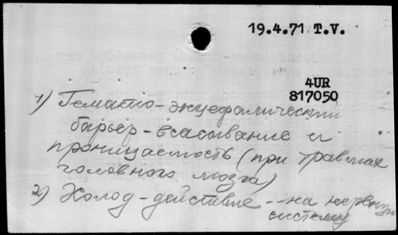 19.4.71 T.V.
4UR
817050
1) Гемато-энцефалический
барьер - всасывание и
проницаемость (при травмах
головного мозга)
2) Холод - действие -- на нервную
систему